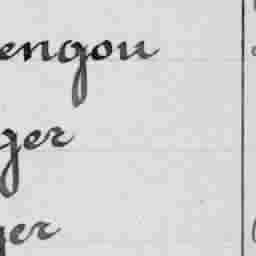 engou
ger
ger